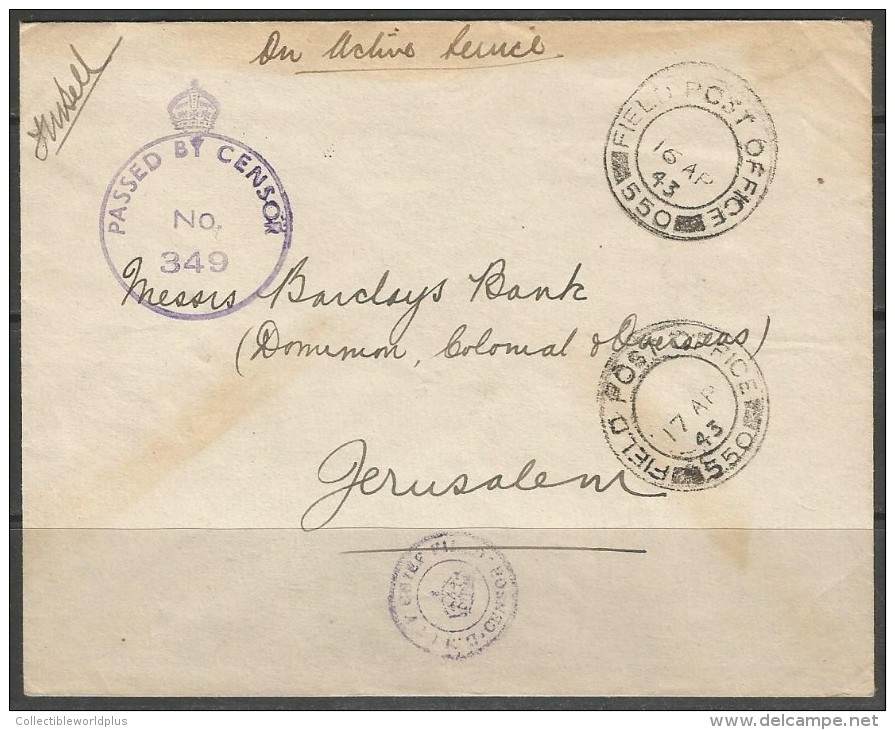 On Active Service
PASSED BY CENSOR
No.
349
FIELD POST OFFICE
16 AP
43
550
Messrs Barclays Bank
(Dominion, Colonial & Overseas)
FIELD POST OFFICE
17 AP
43
550
Jerusalem
Collectibleworldplus
delcampe.net